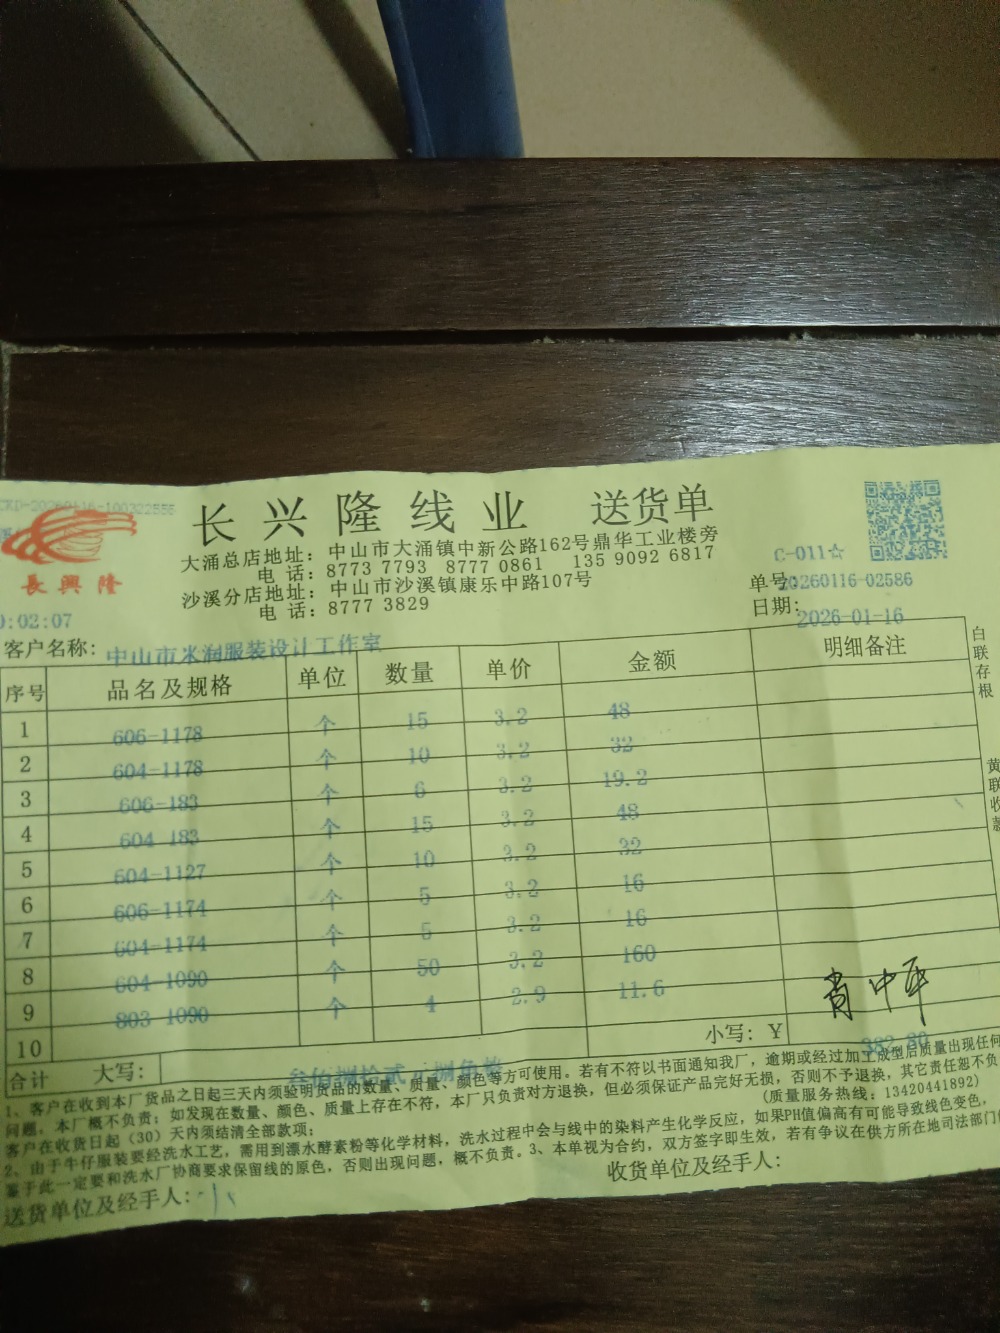 长兴隆线业 送货单
長興隆
大涌总店地址：中山市大涌镇中新公路162号鼎华工业楼旁
电 话：8773 7793 8777 0861 135 9092 6817
沙溪分店地址：中山市沙溪镇康乐中路107号
电 话：8777 3829
C-011☆
单号：20260116-02586
日期：2026-01-16
0:02:07
客户名称：中山市水润服装设计工作室
序号 品名及规格 单位 数量 单价 金额 明细备注
1 606-1178 个 15 3.2 48
2 604-1178 个 10 3.2 32
3 606-183 个 6 3.2 19.2
4 604-183 个 15 3.2 48
5 604-1127 个 10 3.2 32
6 606-1174 个 5 3.2 16
7 604-1174 个 5 3.2 16
8 604-1090 个 50 3.2 160
9 803-1090 个 4 2.9 11.6
10
合计 大写：叁佰捌拾贰元捌角整 小写：￥382.80
肖中平
白联存根
黄联收款
1、客户在收到本厂货品之日起三天内须验明货品的数量、质量、颜色等方可使用。若有不符以书面通知我厂，逾期或经过加工成型后质量出现任何
问题，本厂概不负责；如发现在数量、颜色、质量上存在不符，本厂只负责对方退换，但必须保证产品完好无损，否则不予退换，其它责任恕不负
客户在收货日起（30）天内须结清全部款项； （质量服务热线：13420441892）
2、由于牛仔服装要经洗水工艺，需用到漂水酵素粉等化学材料，洗水过程中会与线中的染料产生化学反应，如果PH值偏高有可能导致线色变色，
鉴于此一定要和洗水厂协商要求保留线的原色，否则出现问题，概不负责。3、本单视为合约，双方签字即生效，若有争议在供方所在地司法部门
送货单位及经手人： 收货单位及经手人：